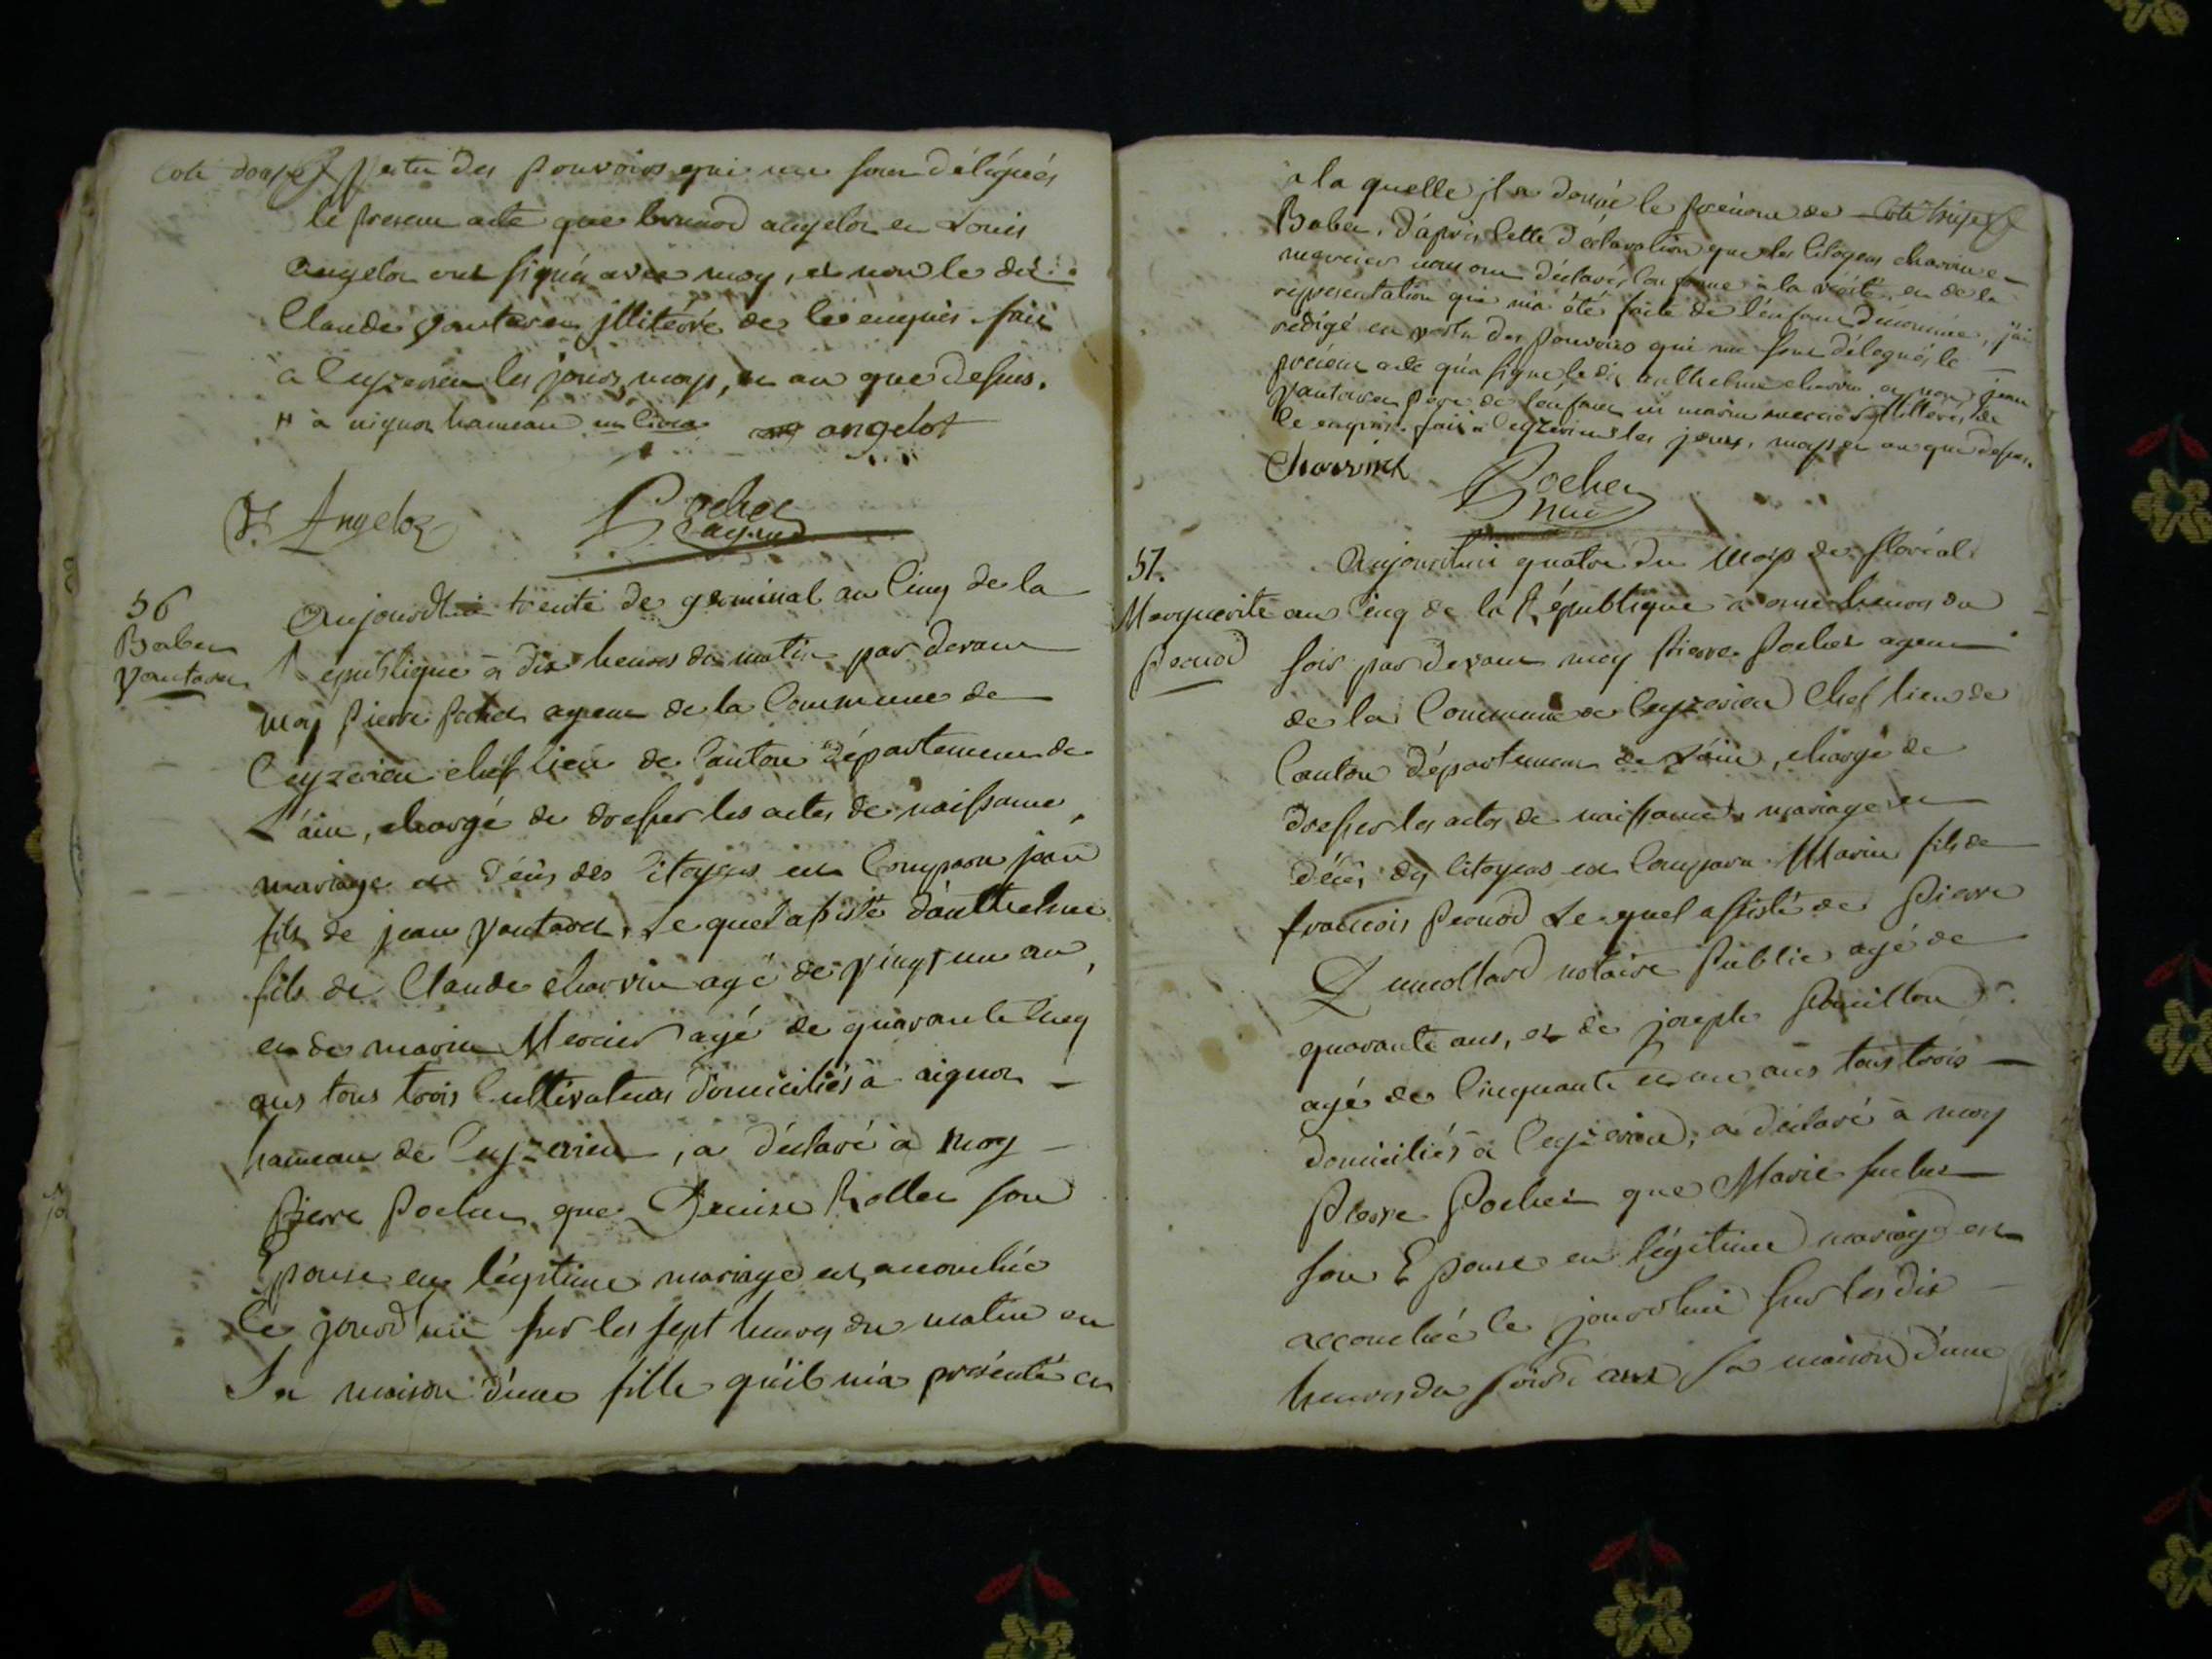 Coté douse vertu des pouvoirs qui me sont délégués
le present acte que bernard angelot et Louis
angelot ont signés avec moy, et non le dit
Claude vantaret illiteré de ce enquis. fait
à Ceyzeriou les jours, moys, et an que dessus.
# à aignoz hameau
angelot
Angeloz
Pochet
agent
56
Babet
vantaret
Aujourdhui trente de germinal an Cinq de la
République à dix heures du matin par devant
moy pierre Pochet agent de la Commune de
Ceyzeriou chef lieu de Canton département de
L'ain, chargé de dresser les actes de naissance,
mariage et décès des Citoyens est Comparu jean
fils de jean vantaret, Lequel assisté d'anthelme
fils de Claude charvin agé de vingt un an,
et de marin Mercier agé de quarante Cinq
ans tous trois Cultivateurs domiciliés à aignoz
hameau de Ceyzeriou, a déclaré à moy
pierre Pochet que Denise Rollet son
Epouse en légitime mariage est accouchée
Ce jourdhui sur les sept heures du matin en
Sa maison d'une fille qu'il m'a présenté et
à la quelle il a donné le prénom de Coté treize
Babet. D'aprés Cette déclaration que les Citoyens charvin et
mercier nous ont déclarés Conforme à la vérité, et de la
représentation qui m'a été faite de l'enfant denommée, j'ai
rédigé en vertu des pouvoirs qui me sont délégués le
présent acte qu'a signé le dit anthelme charvin et non jean
vantaret père de l'enfant ni marin mercier illitterés de
Ce enquis. fait à Ceyzeriou les jours, moys et an que dessus.
Charvin
Pochet
57.
Marguerite
pernod
Aujourdhui quatre du Moys de floréal
an Cinq de la République à onze heures du
soir par devant moy Pierre Pochet agent
de la Commune de Ceyzeriou Chef lieu de
Canton département de L'ain, chargé de
dresser les actes de naissance, mariage et
décès des Citoyens est Comparu Marin fils de
francois pernod Lequel assisté de Pierre
Dumollard notaire Public agé de
quarante ans, et de joseph
agé de Cinquante et un ans tous trois
domiciliés à Ceyzeriou, a déclaré à moy
Pierre Pochet que Marie
son Epouse en légitime mariage est
accouchée Ce jourdhui sur les dix
heures du soir dans sa maison d'une